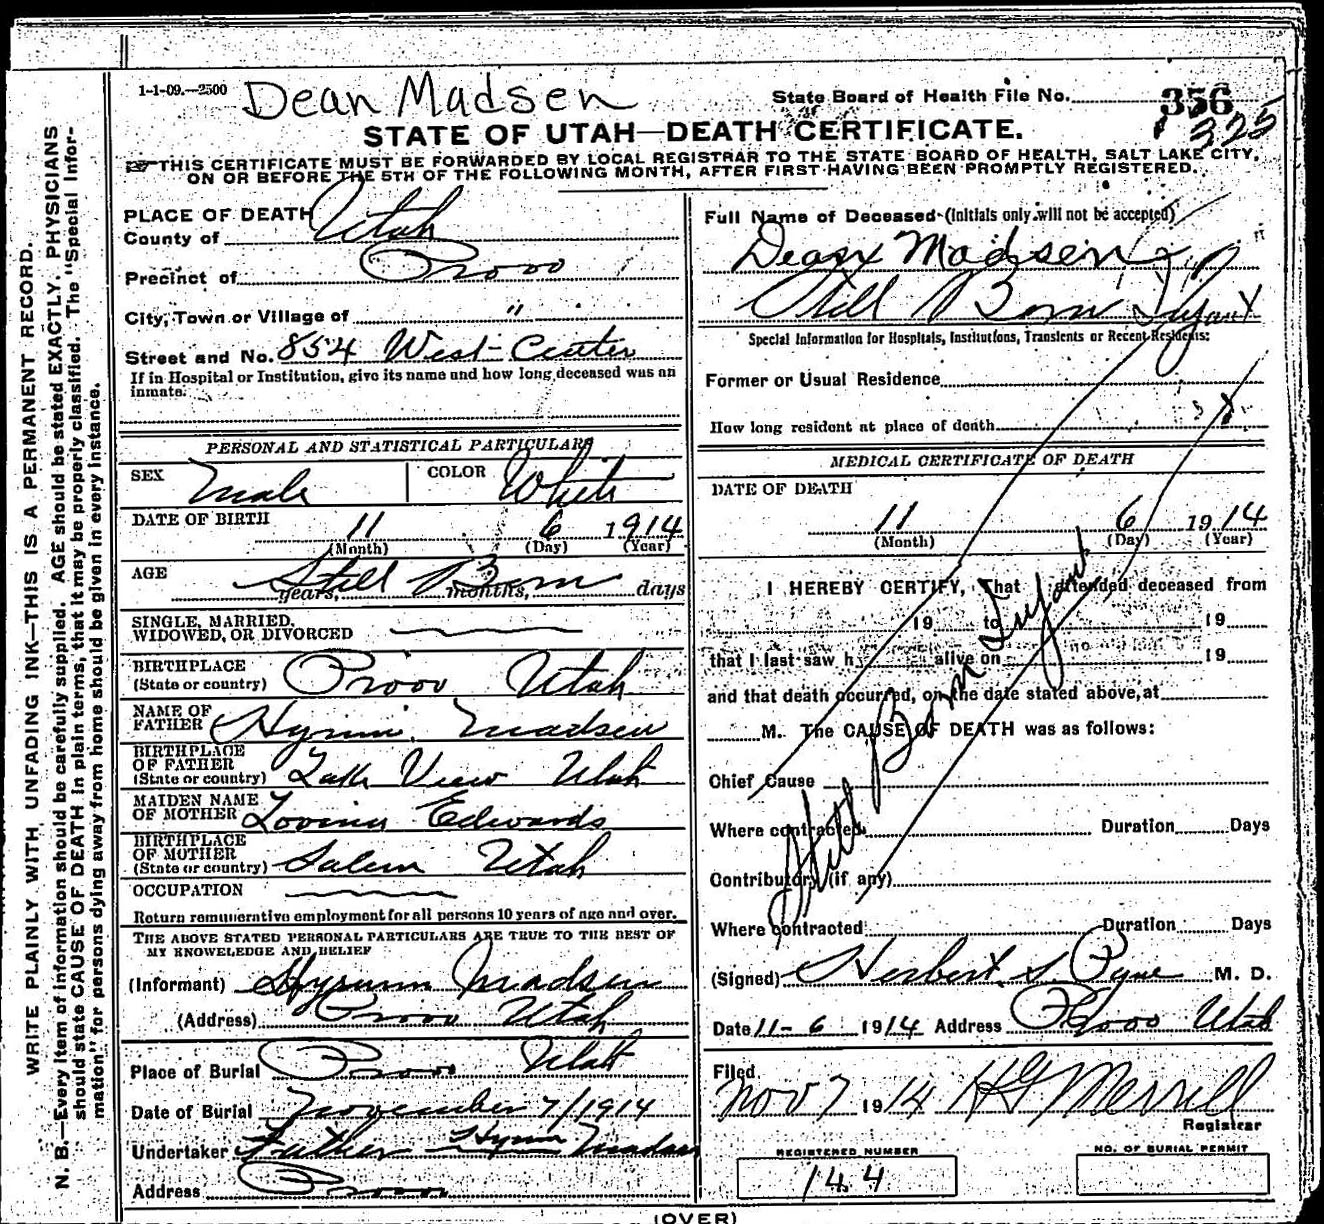 1-1-09.—2500 Dean Madsen
State Board of Health File No. 356
1325
STATE OF UTAH—DEATH CERTIFICATE.
THIS CERTIFICATE MUST BE FORWARDED BY LOCAL REGISTRAR TO THE STATE BOARD OF HEALTH, SALT LAKE CITY,
ON OR BEFORE THE 5TH OF THE FOLLOWING MONTH, AFTER FIRST HAVING BEEN PROMPTLY REGISTERED.
WRITE PLAINLY WITH, UNFADING INK—THIS IS A PERMANENT RECORD.
N. B.—Every item of information should be carefully supplied. AGE should be stated EXACTLY. PHYSICIANS
should state CAUSE OF DEATH in plain terms, that it may be properly classified. The "Special Infor-
mation" for persons dying away from home should be given in every instance.
PLACE OF DEATH
County of Utah
Precinct of Provo
City, Town or Village of "
Street and No. 854 West Center
If in Hospital or Institution, give its name and how long deceased was an
inmate.
PERSONAL AND STATISTICAL PARTICULARS
SEX Male COLOR White
DATE OF BIRTH 11 6 1914
(Month) (Day) (Year)
AGE Still Born
years, months, days
SINGLE, MARRIED,
WIDOWED, OR DIVORCED
BIRTHPLACE
(State or country) Provo Utah
NAME OF
FATHER Hyrum Madsen
BIRTHPLACE
OF FATHER
(State or country) Lake View Utah
MAIDEN NAME
OF MOTHER Lovina Edwards
BIRTHPLACE
OF MOTHER
(State or country) Salem Utah
OCCUPATION
Return remunerative employment for all persons 10 years of age and over.
THE ABOVE STATED PERSONAL PARTICULARS ARE TRUE TO THE BEST OF
MY KNOWELEDGE AND BELIEF
(Informant) Hyrum Madsen
(Address) Provo Utah
Place of Burial Provo Utah
Date of Burial November 7/1914
Undertaker Father Hyrum Madsen
Address Provo
Full Name of Deceased (Initials only will not be accepted)
Dean Madsen
Still Born Infant
Special Information for Hospitals, Institutions, Transients or Recent Residents:
Former or Usual Residence
How long resident at place of death
MEDICAL CERTIFICATE OF DEATH
DATE OF DEATH
11 6 1914
(Month) (Day) (Year)
I HEREBY CERTIFY, That I attended deceased from
19 to 19
that I last saw h alive on 19
and that death occurred, on the date stated above, at
M. The CAUSE OF DEATH was as follows:
Still Born Infant
Chief Cause
Where contracted Duration Days
Contributory (if any)
Where contracted Duration Days
(Signed) Herbert S. Pyne M. D.
Date 11-6 1914 Address Provo Utah
Filed
Nov 7 1914 H G Merrell
Registrar
REGISTERED NUMBER
144
NO. OF BURIAL PERMIT
(OVER)